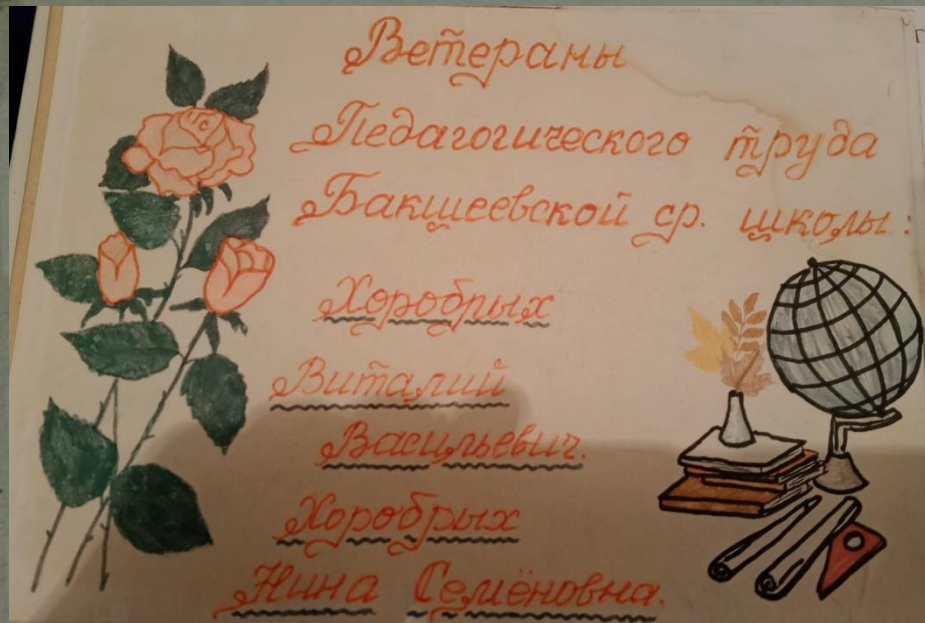 Ветераны
Педагогического труда
Бакшеевской ср. школы:
Хоробрых
Виталий
Васильевич.
Хоробрых
Нина Семёновна.